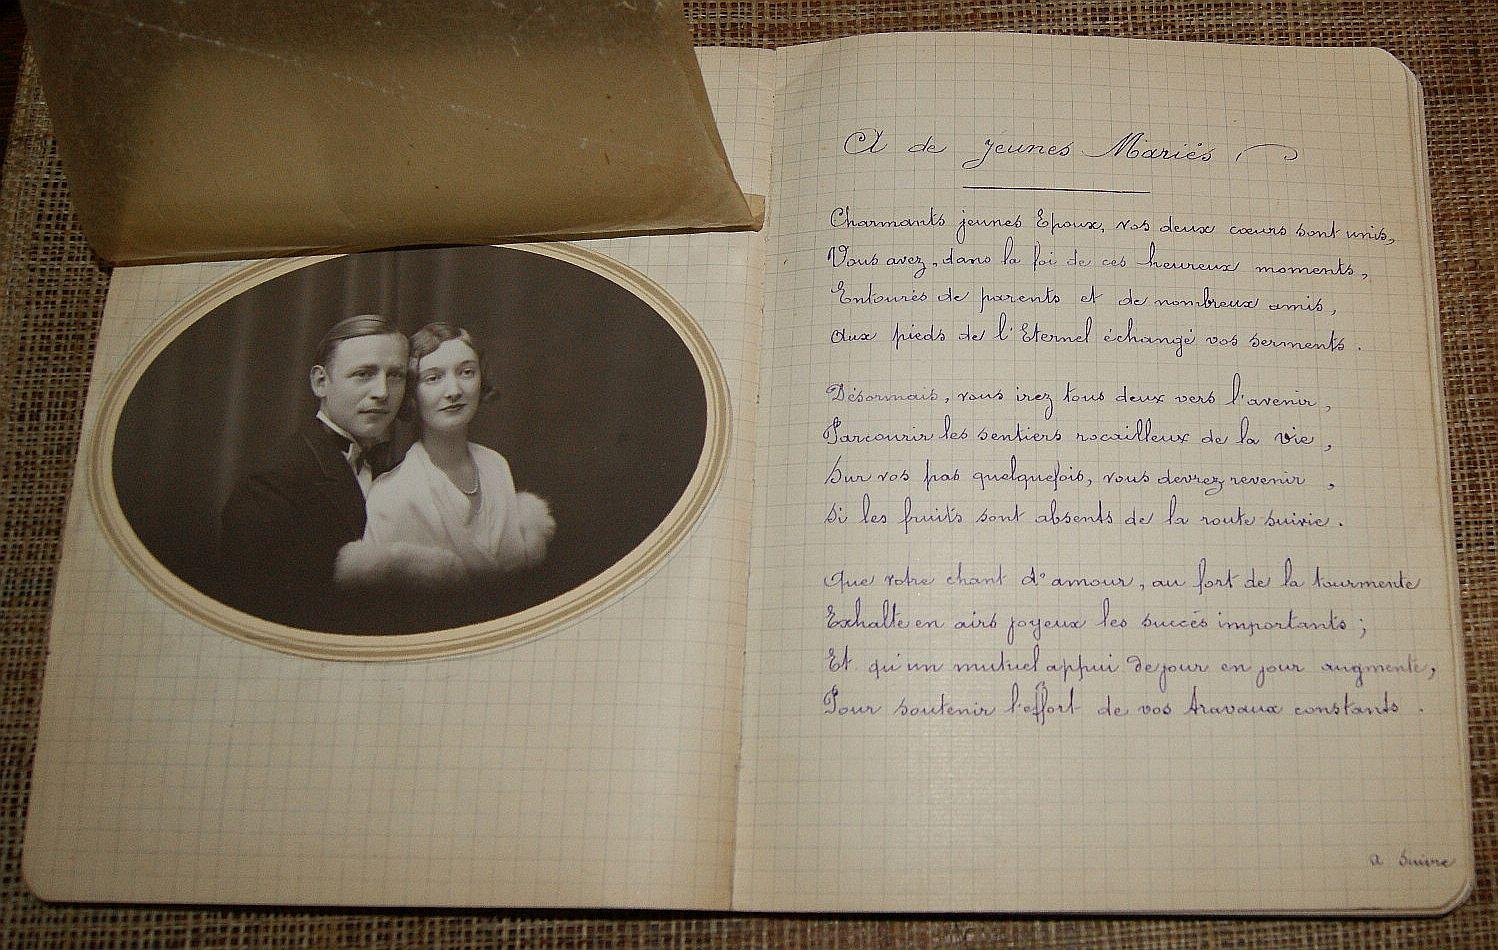 A de jeunes Mariés
Charmants jeunes Epoux, vos deux cœurs sont unis,
Vous avez, dans la foi de ces heureux moments,
Entourés de parents et de nombreux amis,
Aux pieds de l'Eternel échangé vos serments.
Désormais, vous irez tous deux vers l'avenir,
Parcourir les sentiers rocailleux de la vie,
Sur vos pas quelquefois, vous devrez revenir,
Si les fruits sont absents de la route suivie.
Que votre chant d'amour, au fort de la tourmente
Exhalte en airs joyeux les succès importants;
Et qu'un mutuel appui de jour en jour augmente,
Pour soutenir l'effort de vos travaux constants.
a suivre